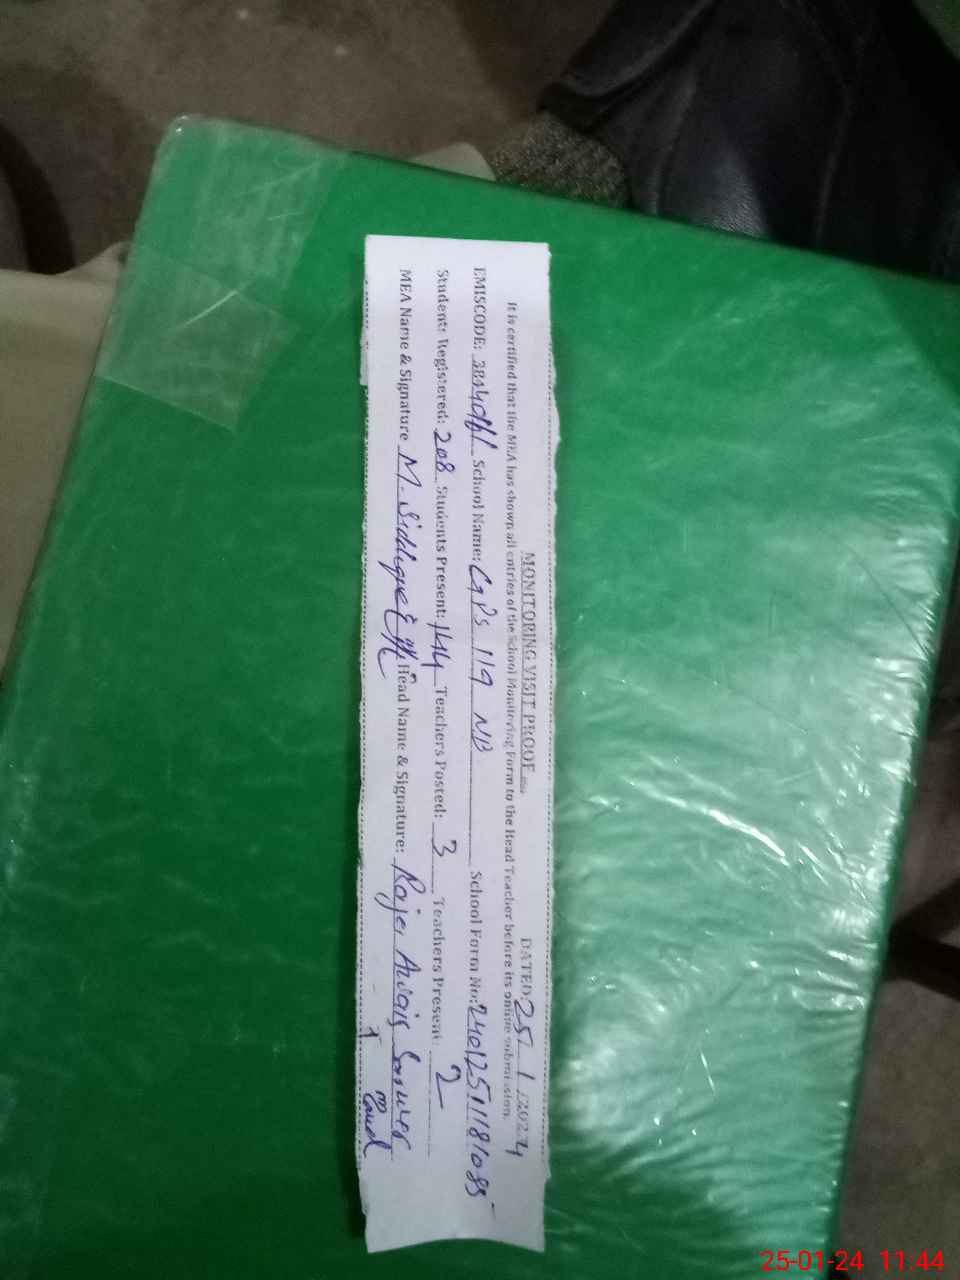 MONITORING VISIT PROOF DATED: 25/1/2024
It is certified that the MEA has shown all entries of the School Monitoring Form to the Head Teacher before its online submission.
EMISCODE: School Name: GPS 119 NB School Form No: 240125111811085
Students Registered: 208 Students Present: 144 Teachers Posted: 3 Teachers Present: 2
MEA Name & Signature M. Siddique Head Name & Signature: Raja Awais Sarwer
25-01-24 11:44